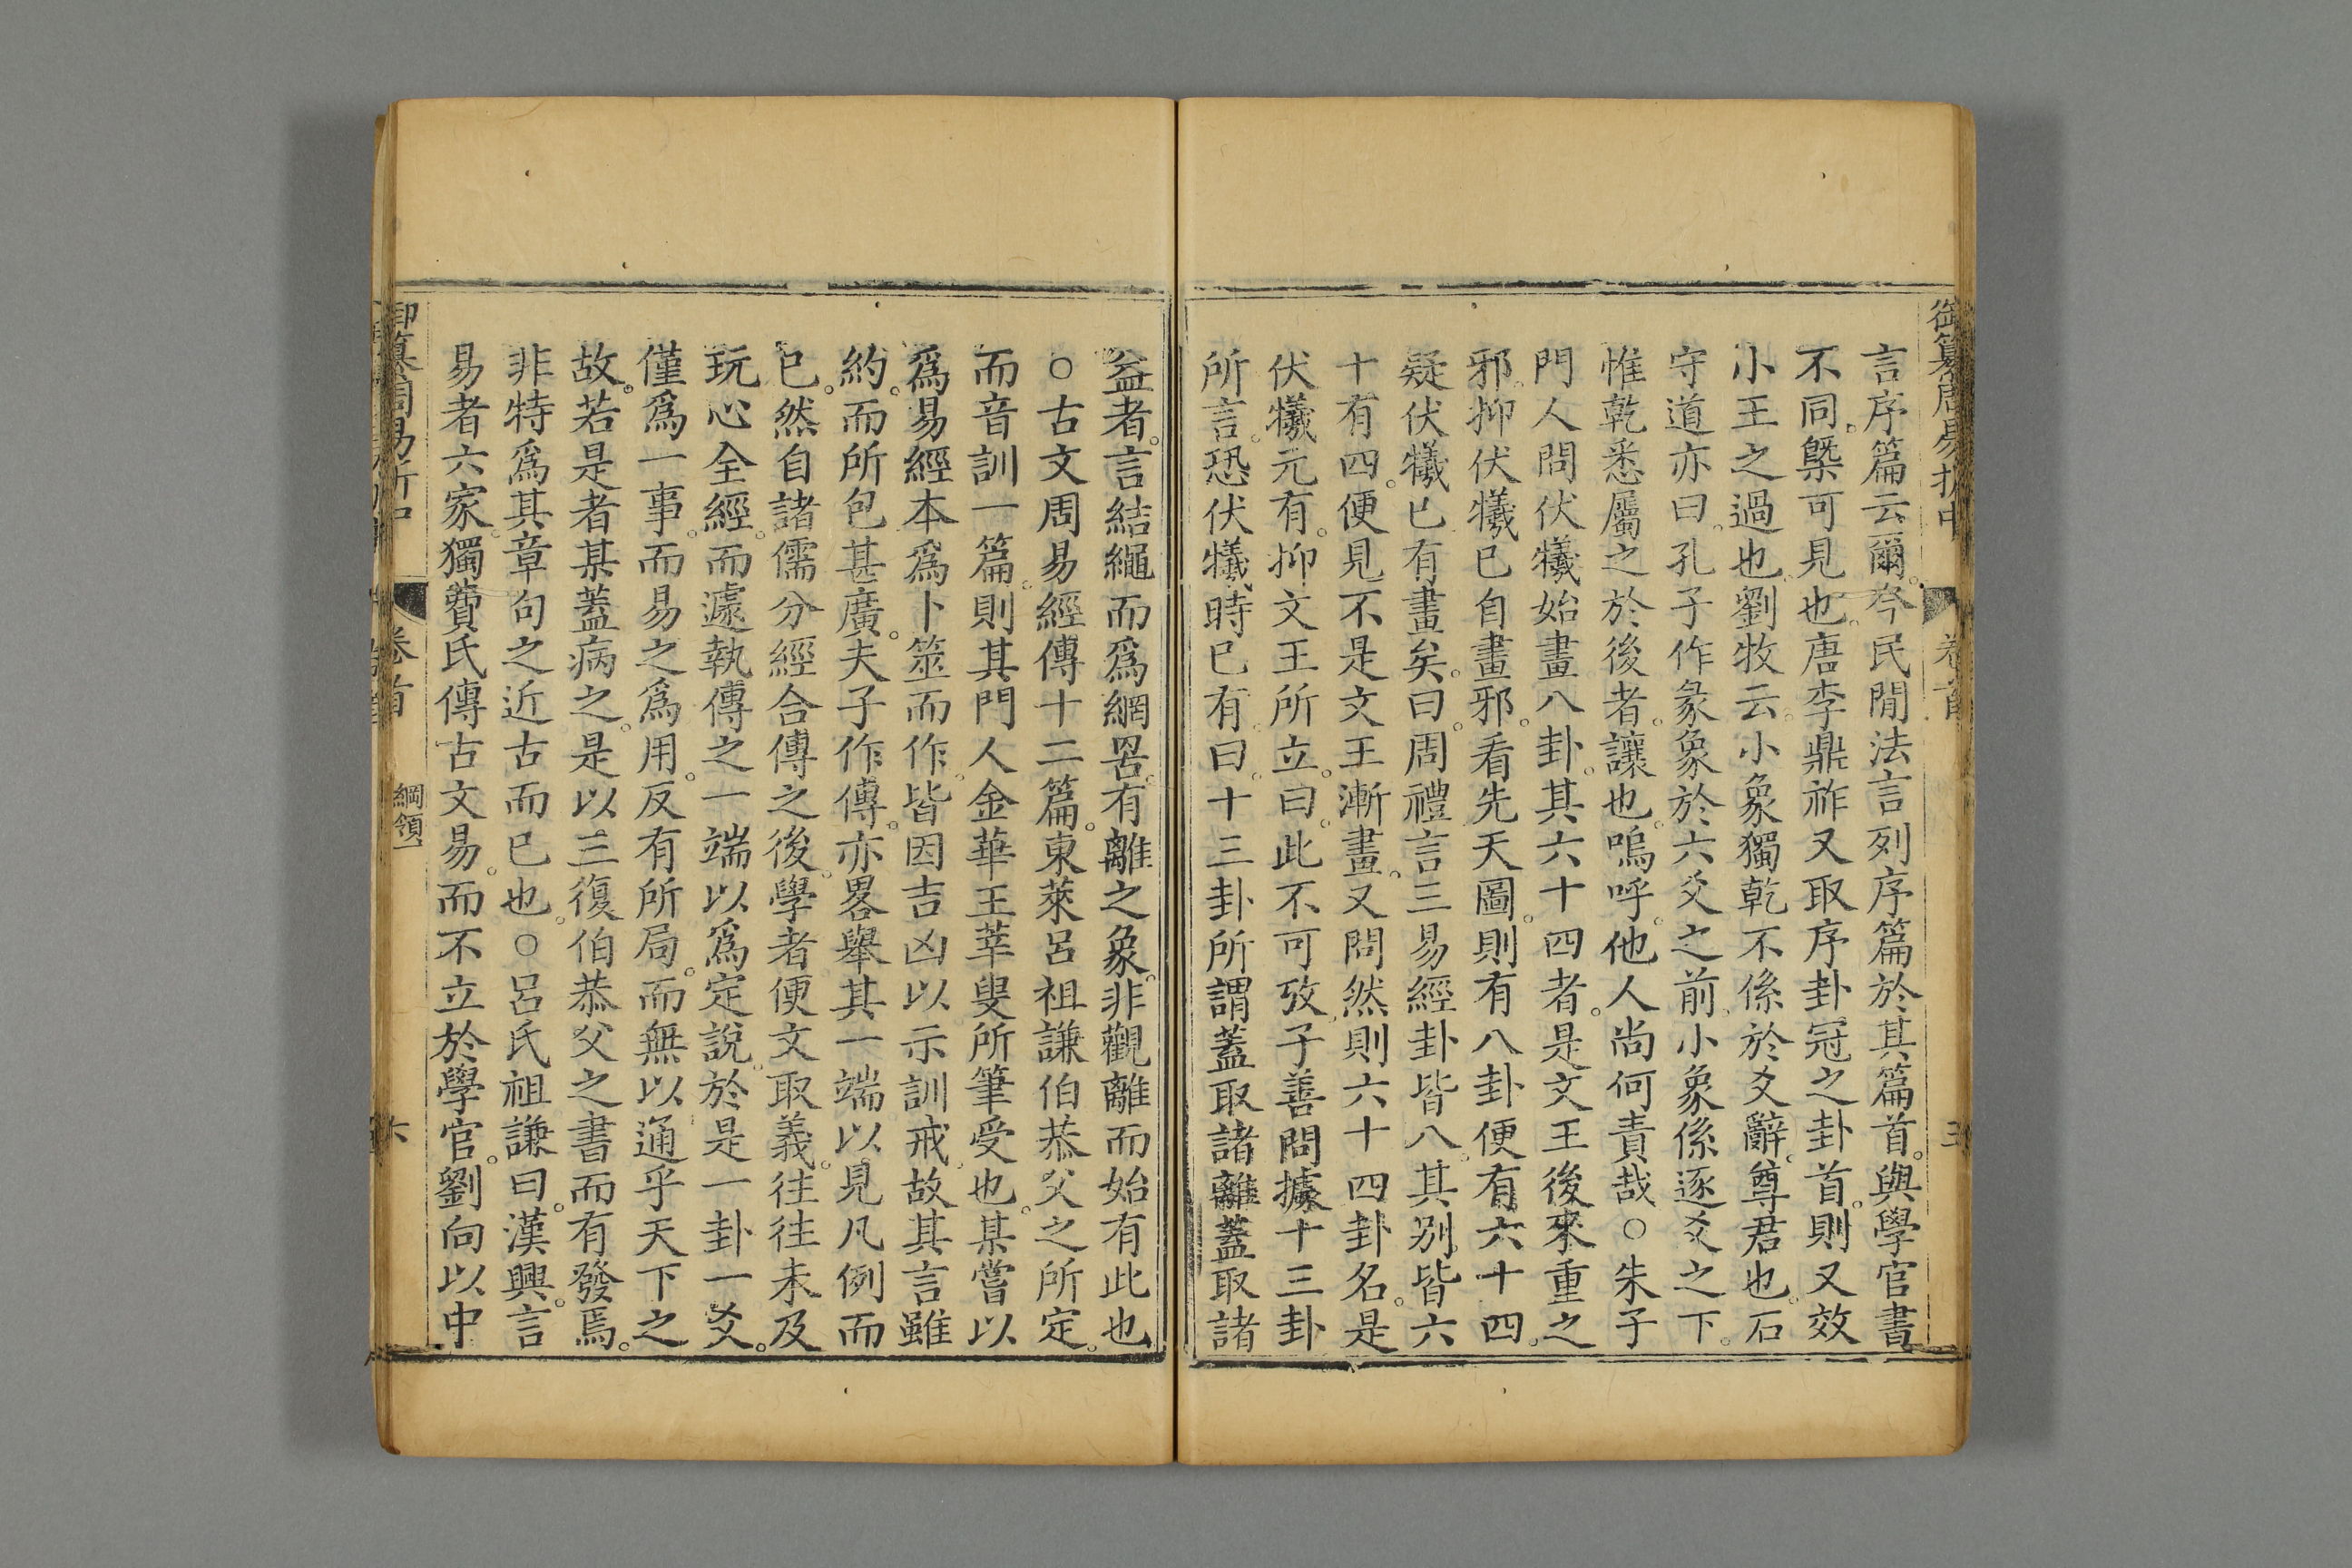 御纂周易折中 卷首 三
言序篇云爾。今民間法言列序篇於其篇首。與學官書
不同。槩可見也。唐李鼎祚又取序卦冠之卦首。則又效
小王之過也。劉牧云。小象獨乾不係於爻辭。尊君也。石
守道亦曰。孔子作彖象於六爻之前。小象係逐爻之下。
惟乾悉屬之於後者。讓也。嗚呼。他人尚何責哉○朱子
門人問伏犧始畫八卦。其六十四者。是文王後來重之
邪。抑伏犧已自畫邪。看先天圖。則有八卦便有六十四。
疑伏犧已有畫矣。曰。周禮言三易經卦皆八。其别皆六
十有四。便見不是文王漸畫。又問然則六十四卦名。是
伏犧元有。抑文王所立。曰。此不可攷。子善問據十三卦
所言。恐伏犧時已有。曰。十三卦所謂蓋取諸離蓋取諸
益者。言結繩而爲網罟。有離之象。非觀離而始有此也
○古文周易經傳十二篇。東萊呂祖謙伯恭父之所定。
而音訓一篇。則其門人金華王莘叟所筆受也。某嘗以
爲易經本爲卜筮而作。皆因吉凶以示訓戒。故其言雖
約。而所包甚廣。夫子作傳。亦畧舉其一端以見凡例而
已。然自諸儒分經合傳之後。學者便文取義。往往未及
玩心全經。而遽執傳之一端以爲定說。於是一卦一爻。
僅爲一事。而易之爲用。反有所局。而無以通乎天下之
故。若是者某蓋病之。是以三復伯恭父之書而有發焉。
非特爲其章句之近古而已也。○呂氏祖謙曰。漢興。言
易者六家。獨費氏傳古文易。而不立於學官。劉向以中
御纂周易折中 卷首 綱領一 六